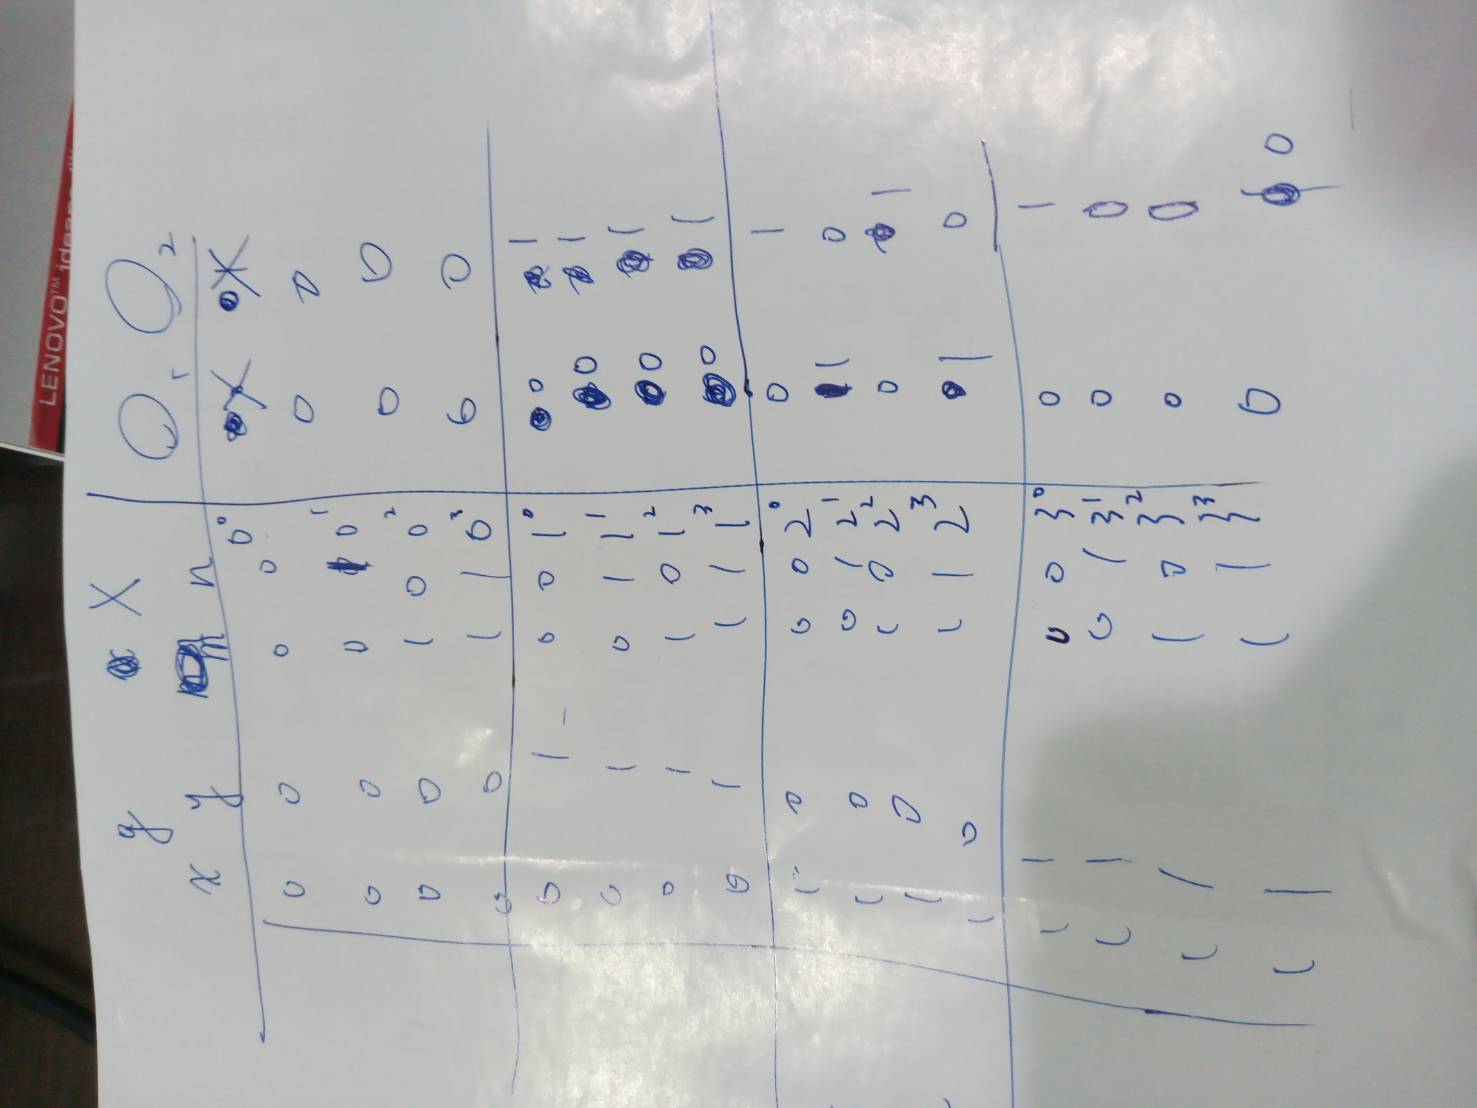 LENOVO™
y X O₁ O₂
x y n
0 0 0 0 0⁰ X X
0 0 0 1 0¹ 0 0
0 0 1 0 0² 0 0
0 0 1 1 0³ 0 0
0 1 0 0 1⁰ 0 1
0 1 0 1 1¹ 0 1
0 1 1 0 1² 0 1
0 1 1 1 1³ 0 1
1 0 0 0 2⁰ 0 1
1 0 0 1 2¹ 1 0
1 0 1 0 2² 0 1
1 0 1 1 2³ 1 0
1 1 0 0 3⁰ 0 1
1 1 0 1 3¹ 0 0
1 1 1 0 3² 0 0
1 1 1 1 3³ 0 0